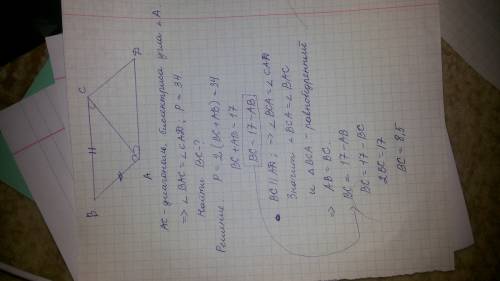 B
H
C
A
D
AC - диагональ, биссектриса угла ∠A
=> ∠BAC = ∠CAD; P = 34.
Найти BC-?
Решение P = 2(BC+AB) = 34
BC + AB = 17
BC = 17-AB
• BC || AD; => ∠BCA = ∠CAD
Значит ∠BCA = ∠BAC
и ΔBCA - равнобедренный
=> AB = BC.
BC = 17-AB
BC = 17-BC
2BC = 17
BC = 8,5